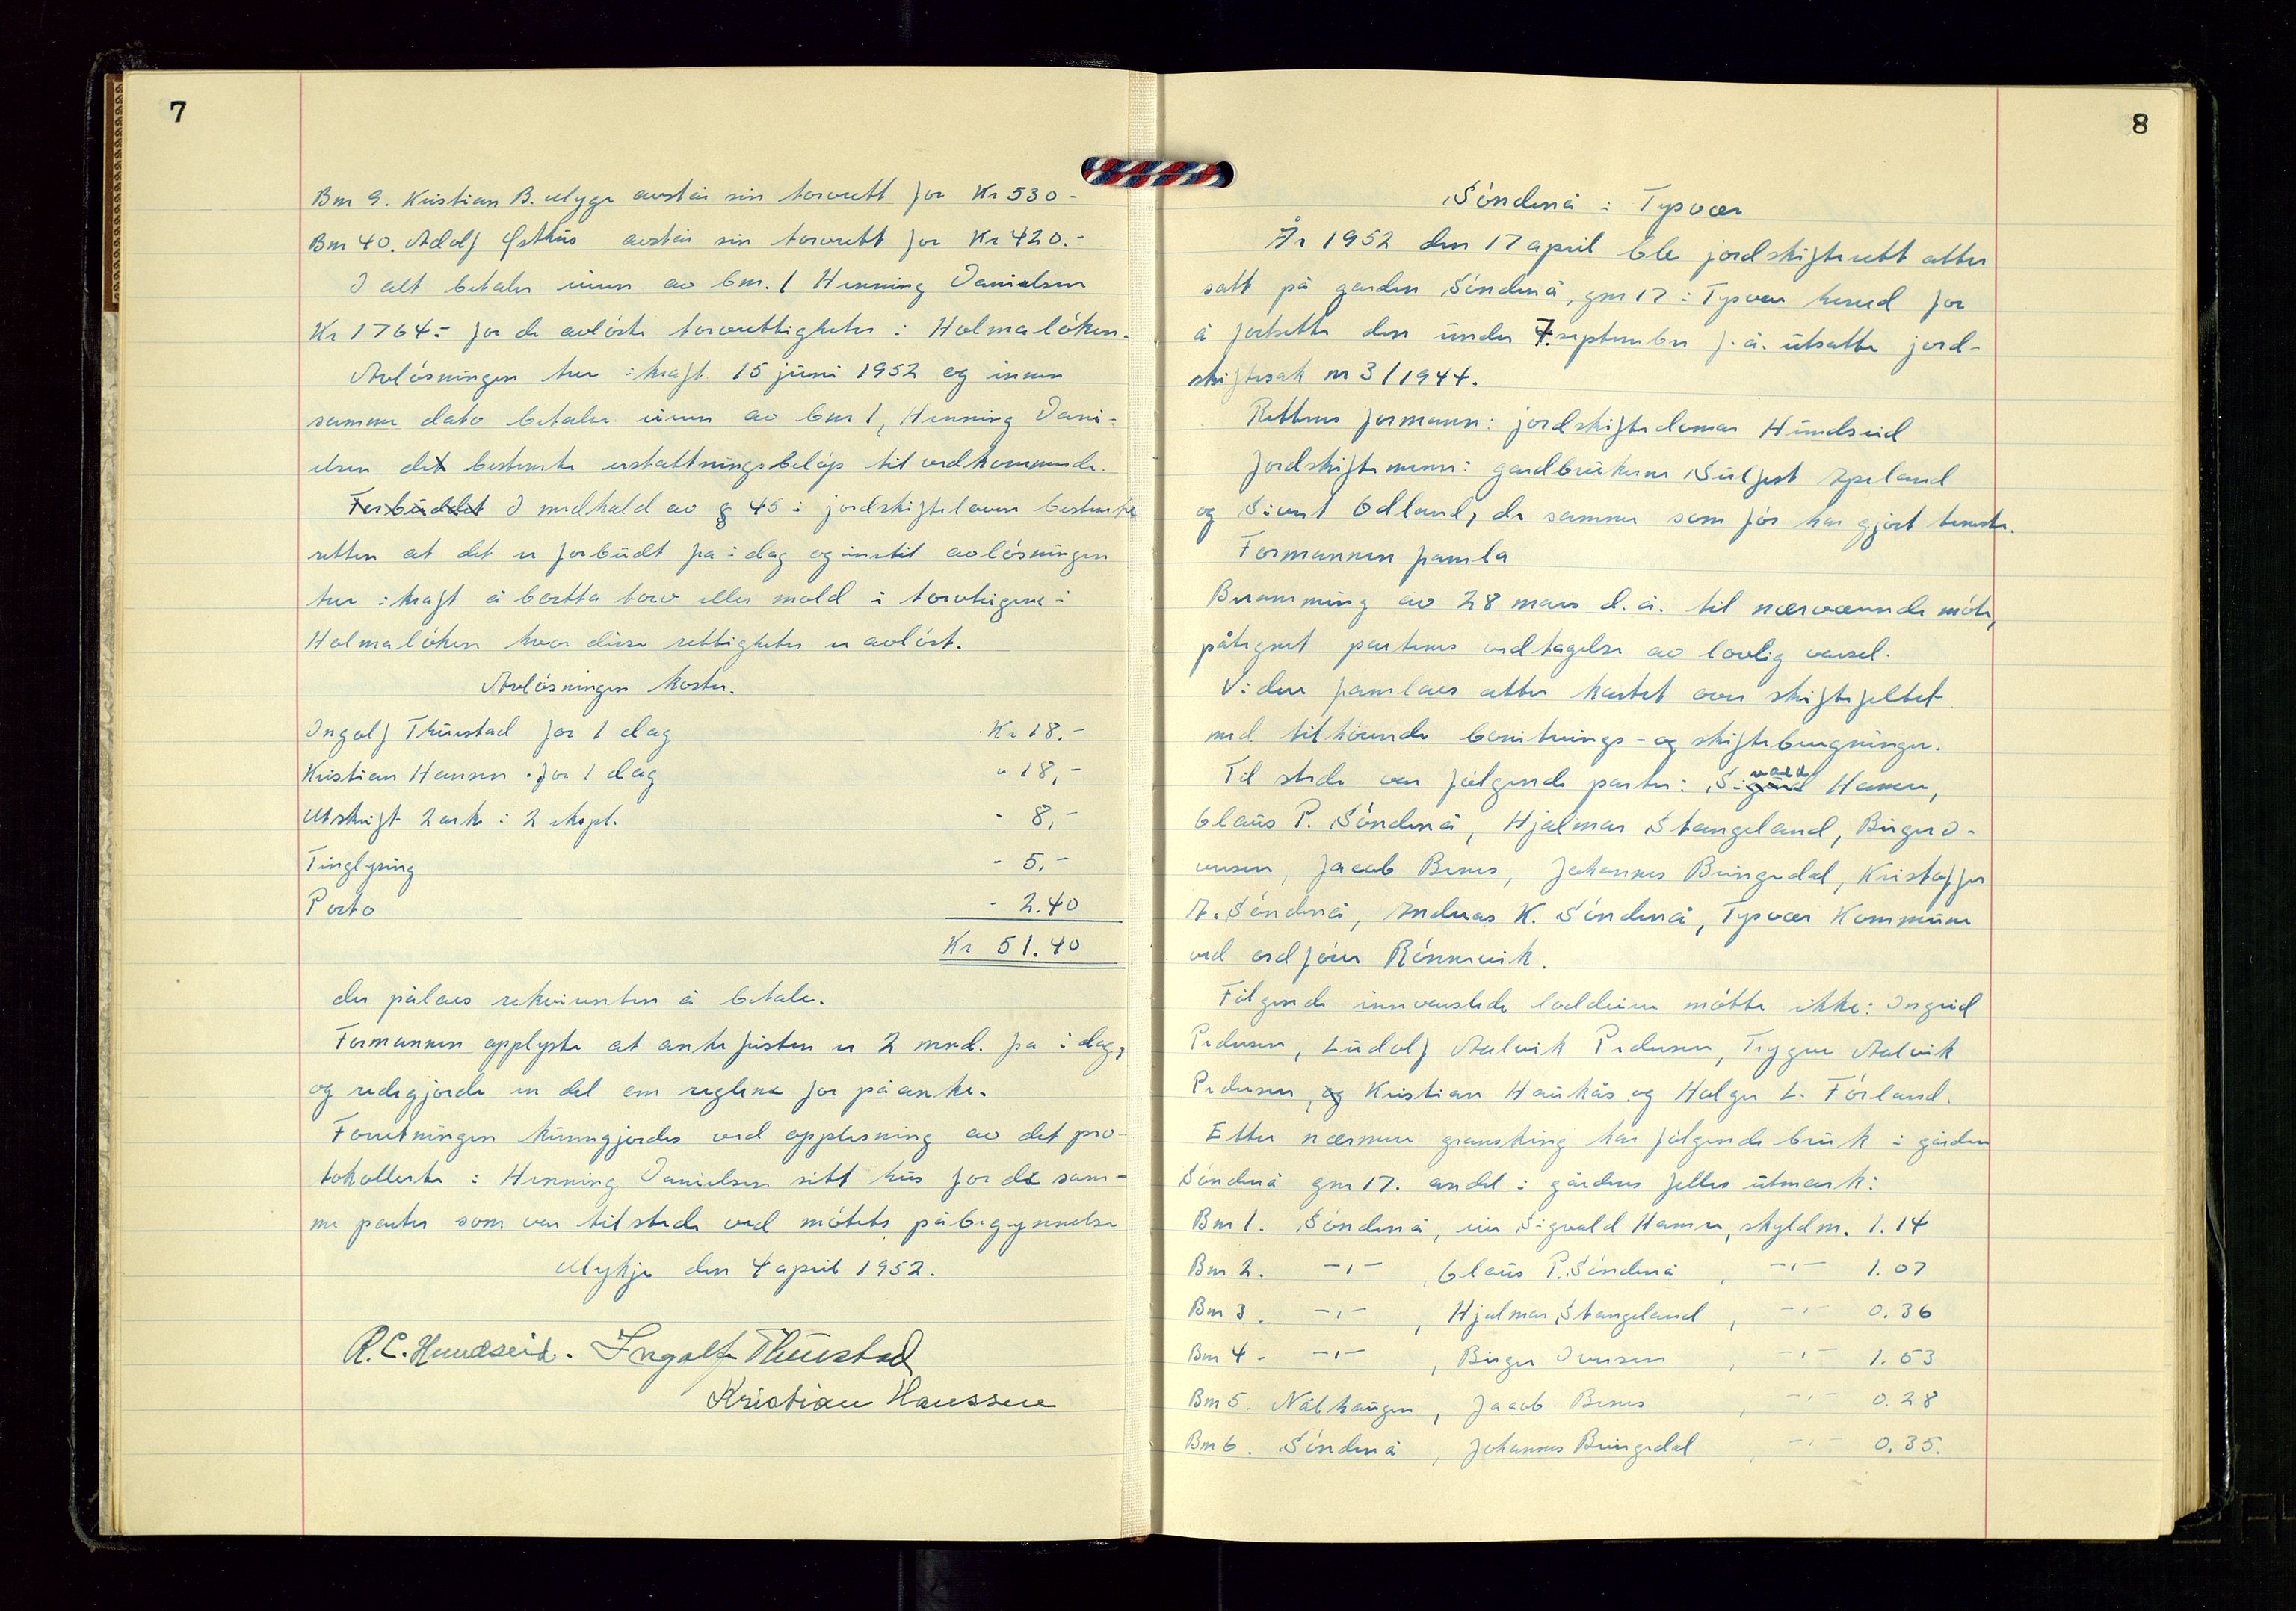 7
Bnr 9. Kristian B. Mykje avstår sin torvrett for Kr 530-
Bnr 40. Adolf Østhus avstår sin torvrett for Kr 420.-
I alt betaler eieren av bnr. 1 Henning Danielsen
Kr 1764.- for de avløste torvrettigheter i Holmaløken.
Avløsningen trer i kraft 15 juni 1952 og innen
samme dato betaler eieren av bnr 1, Henning Dani-
elsen det bestemte erstattningsbeløp til vedkommende.
Forbuddet I medhald av § 45 i jordskiftelaven bestemte
retten at det er forbudt fra i dag og inntil avløsningen
trer i kraft å bortta torv eller mold i torvteigene i
Holmaløken hvor disse rettigheter er avløst.
Avløsningen koster.
Ingolf Thuestad for 1 dag Kr 18.-
Kristian Hansen for 1 dag " 18,-
Utskrift 2 ark i 2 ekspl. - 8,-
Tinglysing - 5.-
Porto - 2.40
Kr 51.40
der pålaes rekvirenten å betale.
Formannen opplyste at ankefristen er 2 mnd. fra i dag,
og redegjorde en del om reglene for påanke.
Forretningen kunngjordes ved opplesning av det pro-
tokollerte i Henning Danielsen sitt hus for de sam-
me parter som var tilstede ved møtets påbegynnelse
Mykje den 4 april 1952.
R.C. Hundseid. Ingolf Thuestad
Kristian Hanssen
8
Søndenå i Tysvær
År 1952 den 17 april ble jordskifterett atter
satt på garden Søndenå, gnr 17 i Tysvær herred for
å fortsette den under 7. september f. å. utsatte jord-
skiftesak nr 3/1944.
Rettens formann: jordskiftedomar Hundseid
Jordskiftemenn: gardbrukerne Sulfest Apeland
og Sivert Odland, de samme som før har gjort teneste.
Formannen framla
Beramming av 28 mars d.å. til nærværende møte,
påtegnet partenes vedtagelse av lovlig varsel.
Videre framlaes atter kartet over skiftefeltet
med tilhørende boniterings- og skifteberegninger.
Til stede var følgende parter: Sigurd vald Hamre,
Claus P. Søndenå, Hjalmar Stangeland, Birger I-
versen, Jacob Benes, Johannes Bringedal, Kristoffer
A. Søndenå, Andreas K. Søndenå, Tysvær Kommune
ved ordfører Rønnevik.
Følgende innvarslede loddeiere møtte ikke: Ingrid
Pedersen, Ludolf Aalvik Pedersen, Trygve Aalvik
Pedersen, og Kristian Haukås og Holger L. Førland.
Etter nærmere gransking har følgende bruk i gården
Søndenå gnr 17. andel i gårdens felles utmark:
Bnr 1. Søndenå, eier Sigvald Hamre, skyldm. 1.14
Bnr 2. -"- , Claus P. Søndenå , -"- 1.07
Bnr 3. -"- , Hjalmar Stangeland , -"- 0.36
Bnr 4. -"- , Birger Iversen , -"- 1.53
Bnr 5. Nåthaugen, Jacob Benes , -"- 0.28
Bnr 6. Søndenå , Johannes Bringedal , -"- 0.35.